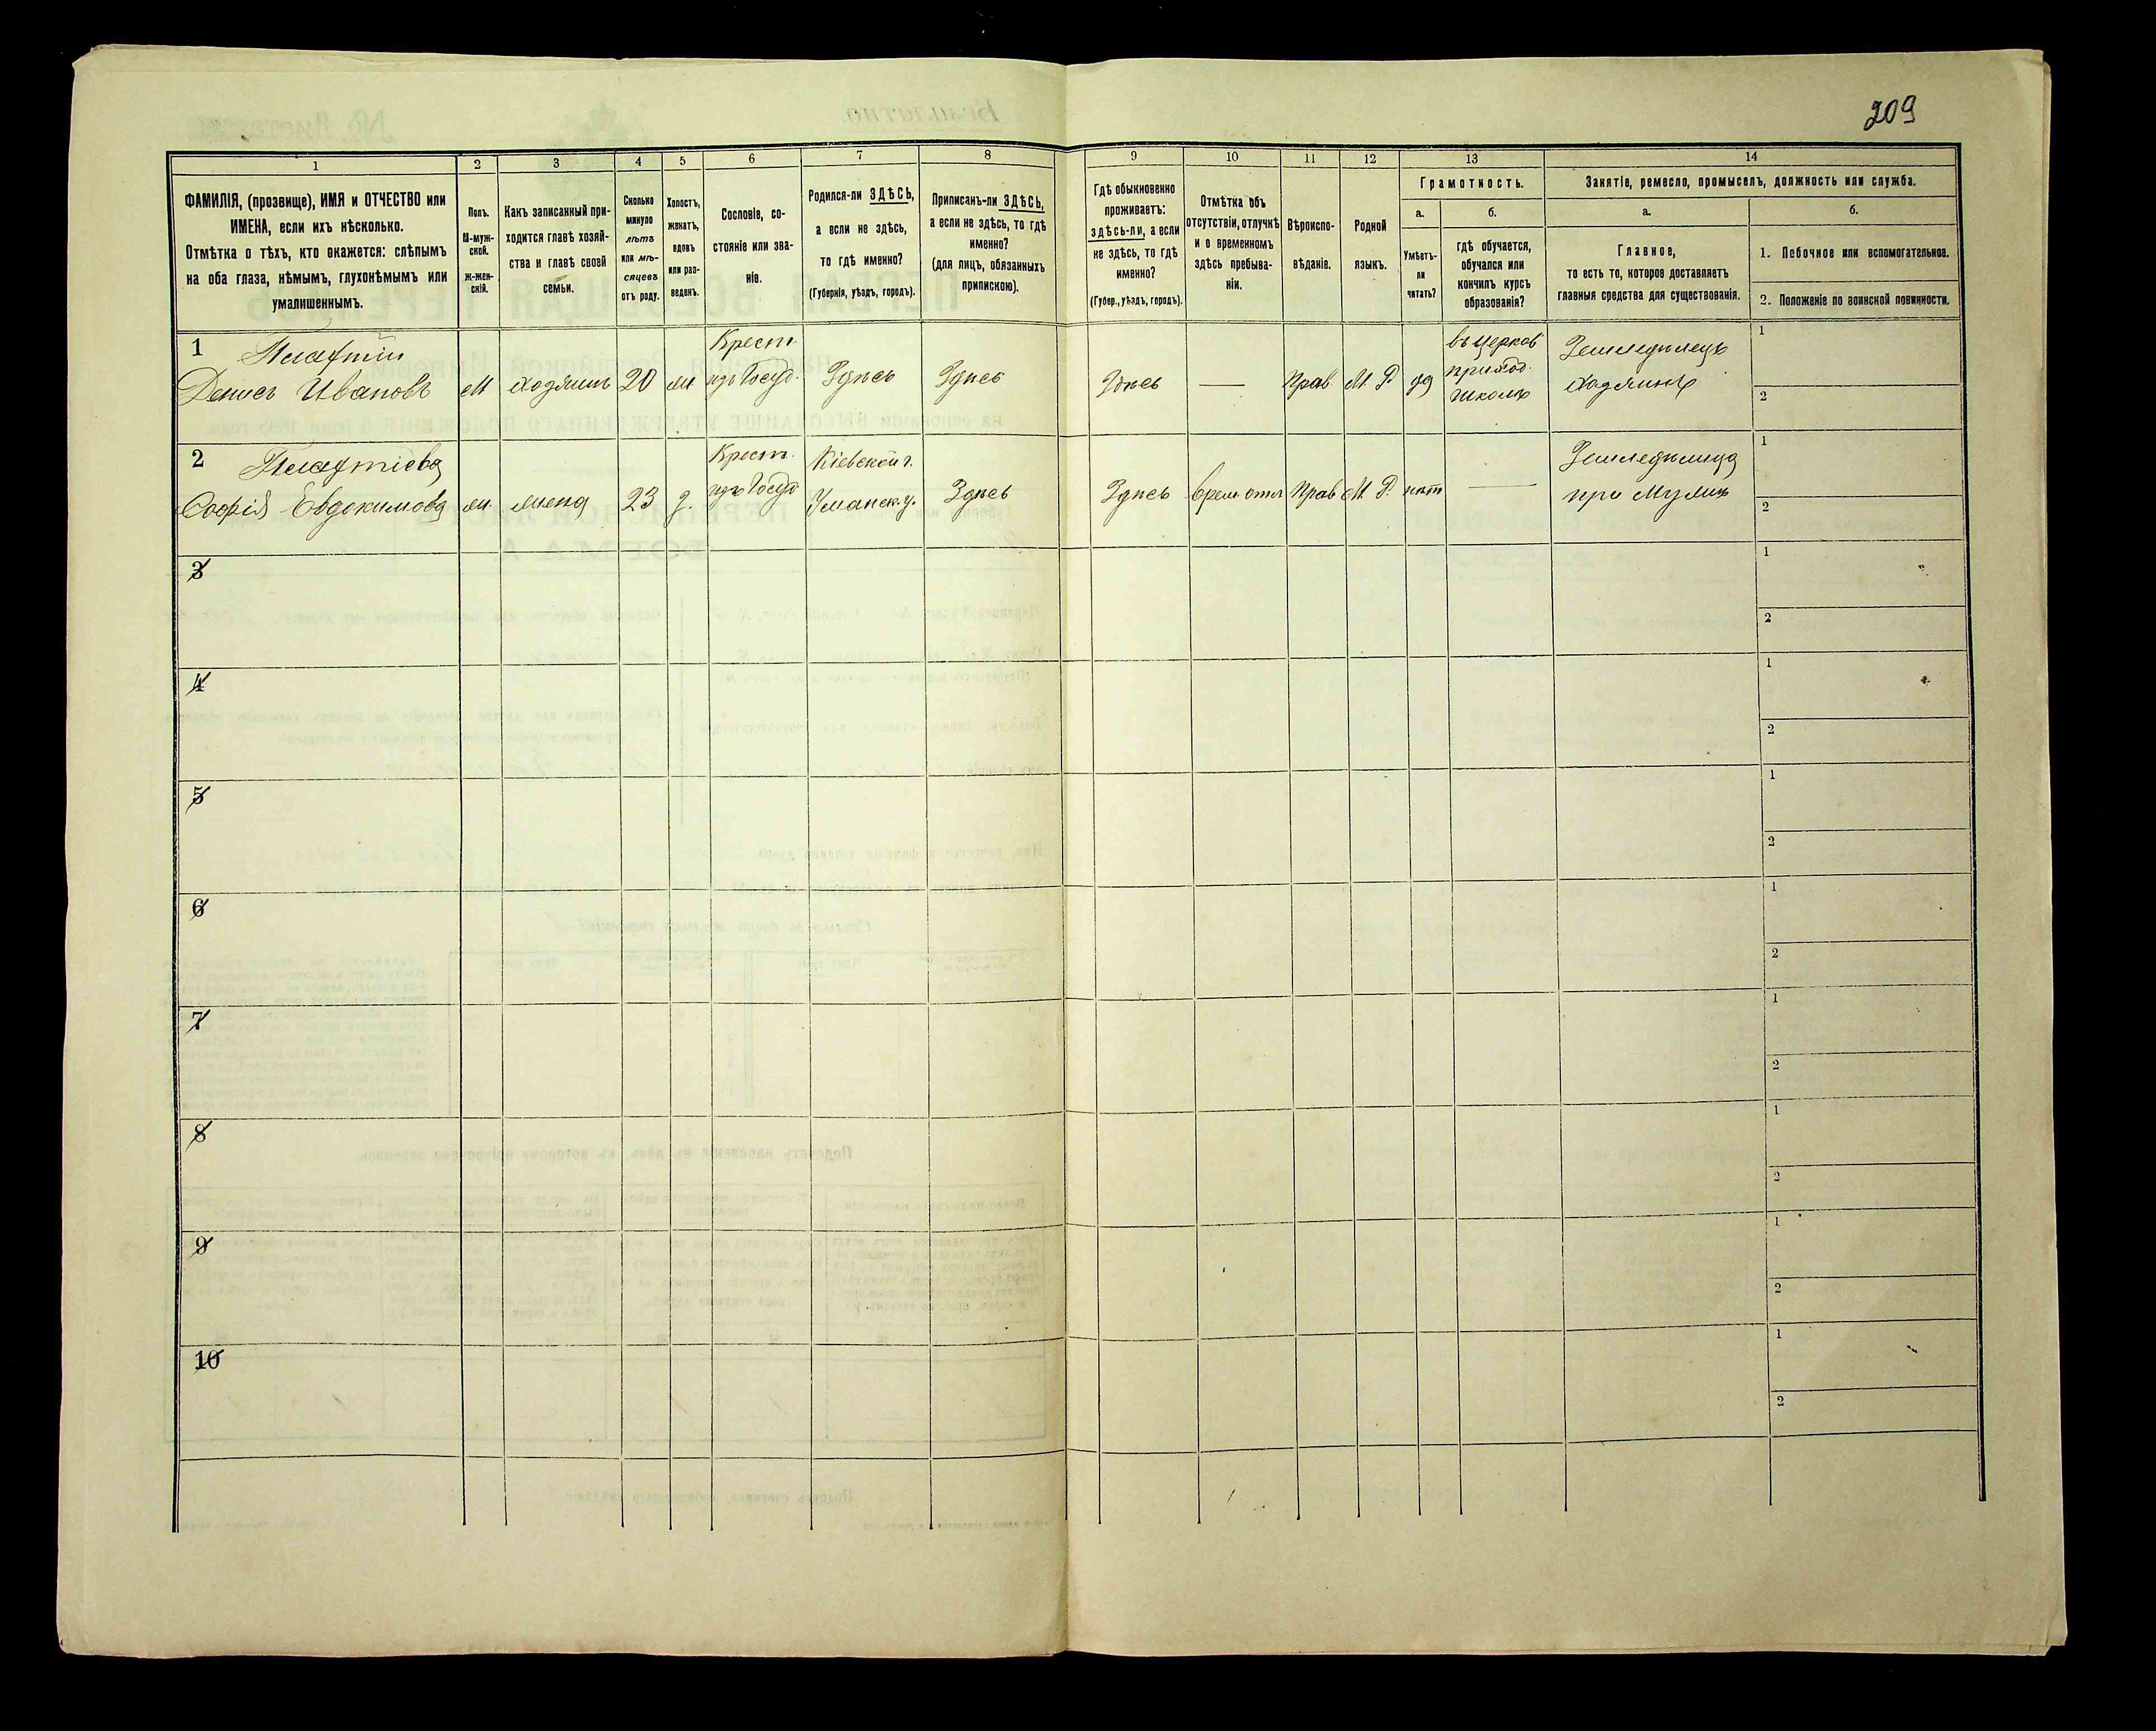 209
1
2
3
4
5
6
7
8
9
10
11
12
13
14
ФАМИЛІЯ, (прозвище), ИМЯ и ОТЧЕСТВО или
ИМЕНА, если ихъ нѣсколько.
Отмѣтка о тѣхъ, кто окажется: слѣпымъ
на оба глаза, нѣмымъ, глухонѣмымъ или
умалишеннымъ.
Полъ.
М-муж-
ской.
Ж-жен-
скій.
Какъ записанный при-
ходится главѣ хозяй-
ства и главѣ своей
семьи.
Сколько
минуло
лѣтъ
или мѣ-
сяцевъ
отъ роду.
Холостъ,
женатъ,
вдовъ
или раз-
веденъ.
Сословіе, со-
стояніе или зва-
ніе.
Родился-ли ЗДѢСЬ,
а если не здѣсь,
то гдѣ именно?
(Губернія, уѣздъ, городъ).
Приписанъ-ли ЗДѢСЬ,
а если не здѣсь, то гдѣ
именно?
(для лицъ, обязанныхъ
припискою).
Гдѣ обыкновенно
проживаетъ:
здѣсь-ли, а если
не здѣсь, то гдѣ
именно?
(Губер., уѣздъ, городъ).
Отмѣтка объ
отсутствіи, отлучкѣ
и о временномъ
здѣсь пребыва-
ніи.
Вѣроиспо-
вѣданіе.
Родной
языкъ.
Грамотность.
а.
Умѣетъ-
ли
читать?
б.
гдѣ обучается,
обучался или
кончилъ курсъ
образованія?
Занятіе, ремесло, промыселъ, должность или служба.
а.
Главное,
то есть то, которое доставляетъ
главныя средства для существованія.
б.
1. Побочное или вспомогательное.
2. Положеніе по воинской повинности.
1
Денисъ Ивановъ
М
хозяинъ
20
Крест.
изъ Госуд.
Здѣсь
Здѣсь
Здѣсь
—
Прав.
М. Р.
да
въ церков
приход.
школѣ
Земледѣлецъ
хозяинъ
1
2
2
Софія Евдокимова
жена
23
Крест.
изъ Госуд
Кіевской г.
Уманск. у.
Здѣсь
Здѣсь
Прав
М. Р.
нѣт
—
при мужѣ
1
2
3
1
2
4
1
2
5
1
2
6
1
2
7
1
2
8
1
2
9
1
2
10
1
2